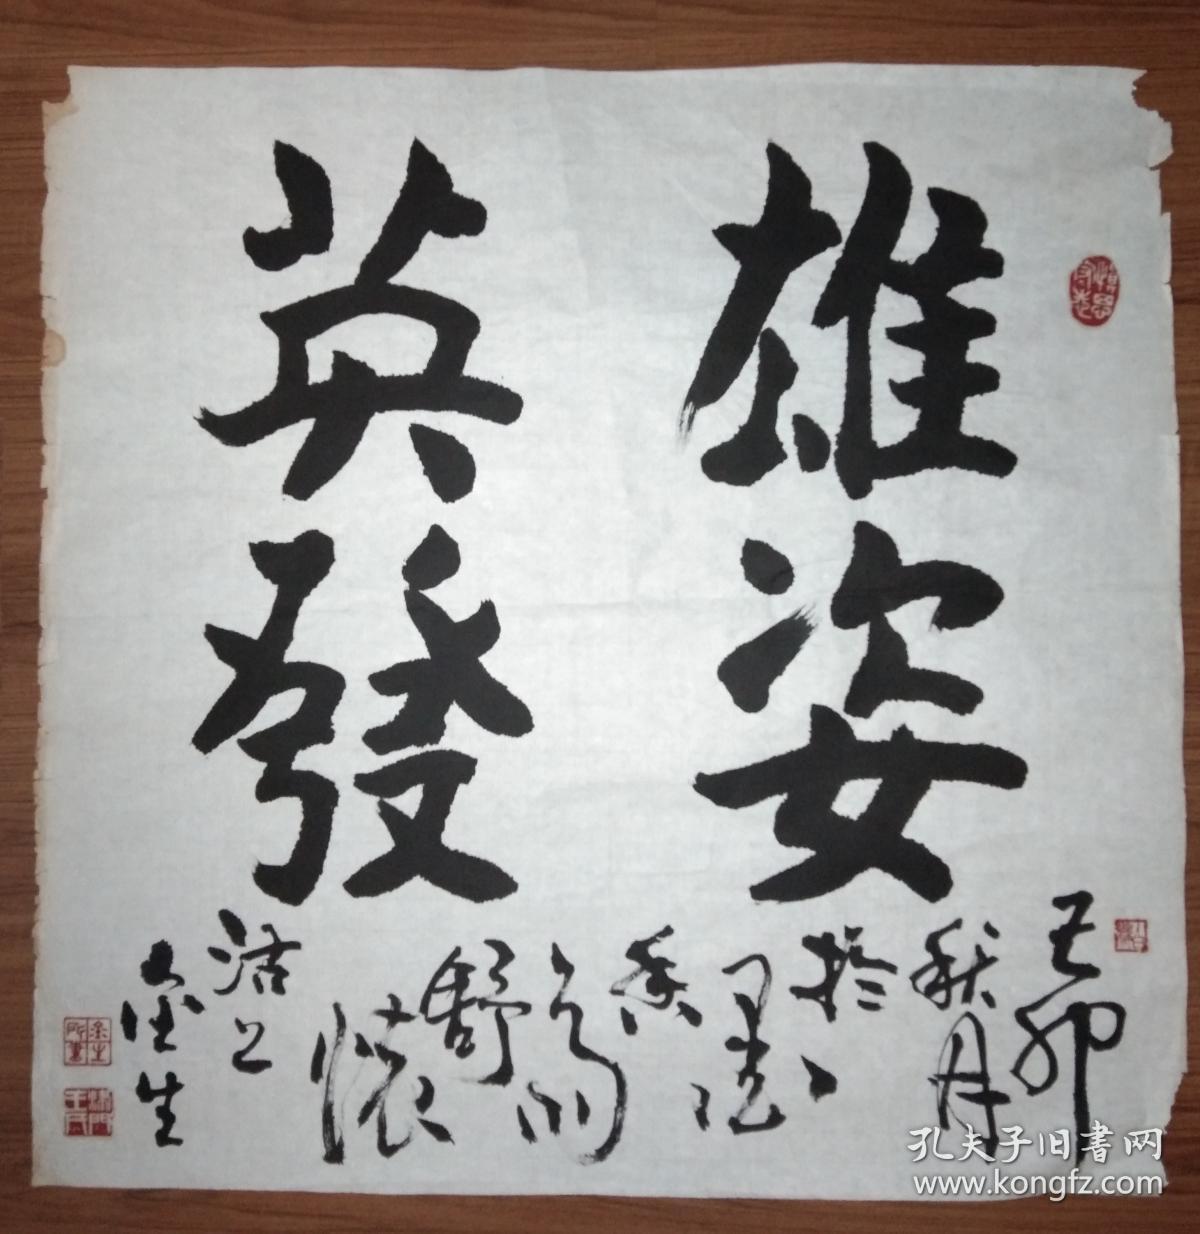 雄姿
英發
己卯
秋月
於
墨
香
舒
懷
沽上
金生
孔夫子旧书网
www.kongfz.com